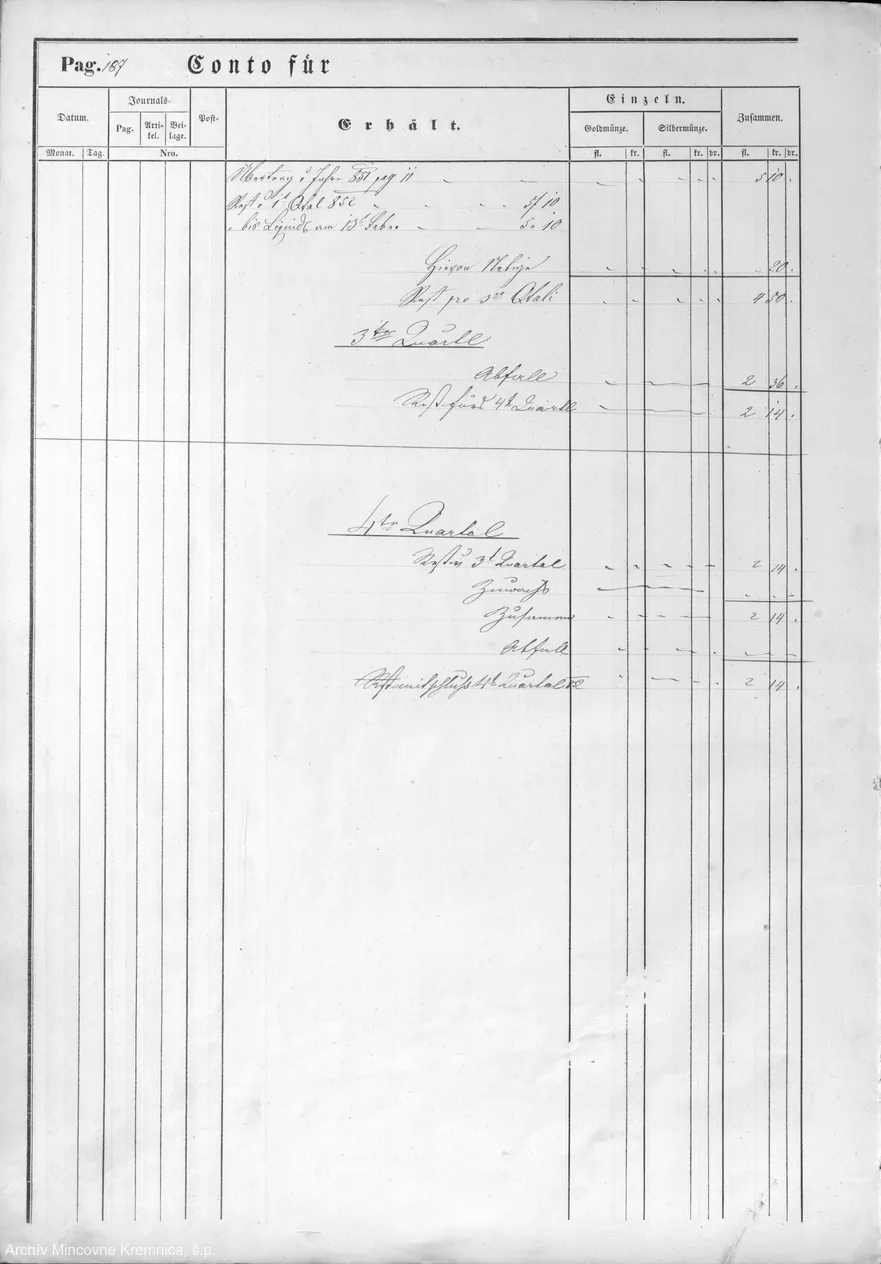 Pag. 187 Conto für
Datum. Journals- Post- Erhält. Einzeln. Zusammen.
Pag. Arti-kel. Bei-lage. Goldmünze. Silbermünze.
Monat. Tag. Nro. fl. kr. fl. kr. dr. fl. kr. dr.
Übertrag v Jahre 851 pag 11 5 10
Rest v 1t Qtal 852 5f 10
bis Liquid am 13t 5 " 10
Hievon 20
Rest pro 3tes Qtali 4 50
3ter Quartl
Abfall 2 36
Rest fürs 4t Quartl 2 14
4ter Quartal
Rest v 3t Quartal 2 14
Zuwachs
Zusammen 2 14
Abfall
Rest mit Schluss 4t Quartal 52 2 14
Archív Mincovne Kremnica, š.p.